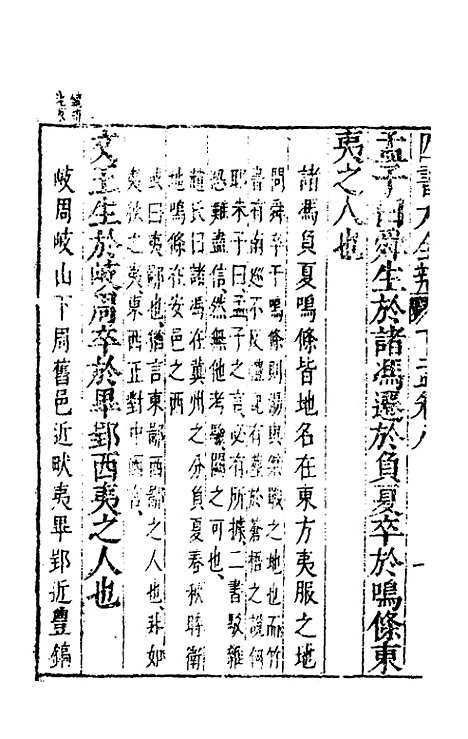 孟子曰舜生於諸馮遷於負夏卒於鳴條東
夷之人也
諸馮負夏鳴條皆地名在東方夷服之地
問舜卒于鳴條則湯與桀戰之地也而竹
書有南巡不反禮記有葬於蒼梧之說何
耶朱子曰孟子之言必有所據二書駁雜
恐難盡信然無他考驗闕之可也
趙氏曰諸馮在冀州之分負夏春秋時衛
地鳴條在安邑之西
或曰夷鄙也猶言東鄙西鄙之人也非如
夷狄之夷東西正對中西言
文王生於岐周卒於畢郢西夷之人也
岐周岐山下周舊邑近畎夷畢郢近豐鎬